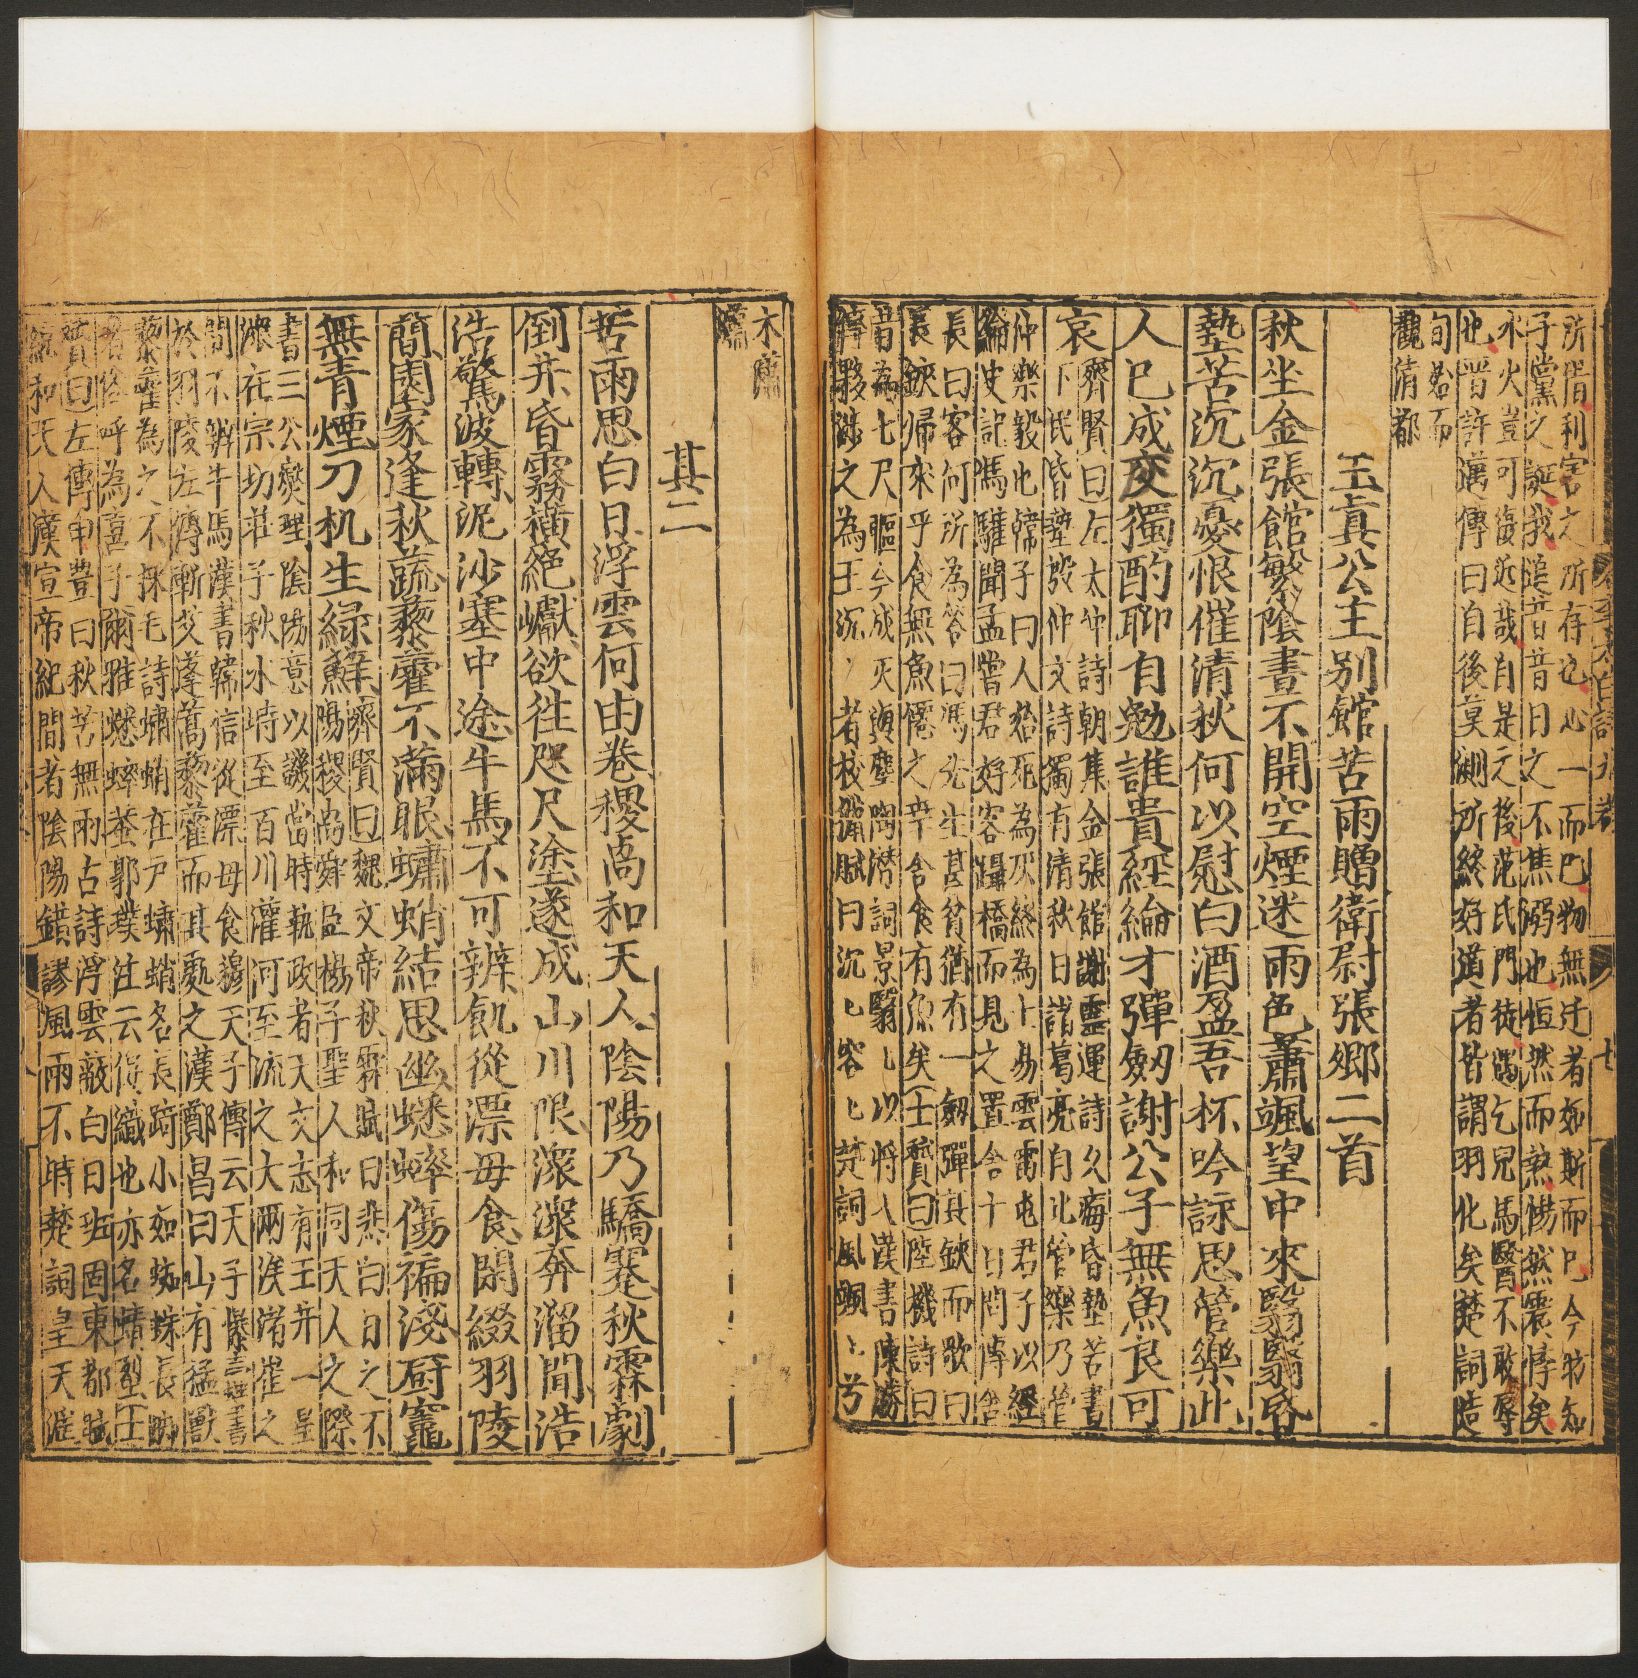 所𣸯利害之所存也心一而已物無迕者如斯而已今昉知
子黨之誕我追昔昔日之不焦溺也怛然而𤍠惕然震悸矣
水火豈可復近哉自是之後范氏門徒遇乞兒馬醫不敢辱
也晋許邁傳曰自後莫測所終好道者皆謂羽化矣楚詞造
旬始而
觀清都
玉真公主别館苦雨贈衛尉張卿二首
秋坐金張館繁隂晝不開空煙迷雨色蕭颯望中來翳翳昏
墊苦沉沉憂恨催清秋何以慰白酒盈吾杯吟詠思管樂此
人已成灰獨酌聊自勉誰貴經綸才彈劒謝公子無魚良可
哀
齊賢曰左太仲詩朝集金張館謝靈運詩久痗昏墊苦書
下民昏墊殷仲文詩獨有清秋日諸葛亮自比管樂乃管
仲樂毅也韓子曰人始死為灰終為土易雲雷屯君子以經
綸史記馮驩聞孟嘗君好客躡橋而見之置舍十日問傳舍
長曰客何所為答曰馮先生甚貧猶有一劒彈其鋏而歌曰
長鋏歸來乎食無魚僊之幸舍食有魚矣士贇曰陸機詩曰
昔為七尺軀今成灰與塵陶潜詞景翳翳以將入漢書陳勝
傳夥涉之為王沉沉者枚乘賦曰沉沉容容楚詞風颯颯兮
木蕭
蕭
其二
苦雨思白日浮雲何由卷稷卨和天人隂陽乃驕蹇秋霖劇
倒井昏霧横絶巘欲徃咫尺塗遂成山川限潨潨奔溜聞浩
浩驚波轉泥沙塞中途牛馬不可辨飢從漂母食閑綴羽陵
簡園家逢秋蔬藜藿不滿眼蠨蛸結思幽蟋蟀傷褊淺厨竈
無青煙刀机生緑蘚
齊賢曰魏文帝秋霖賦曰悲白日之不
陽稷卨舜臣楊子聖人和同天人之際
書三公爕理隂陽意以譏當時執政者天文志有玉井一星
潨在宗切莊子秋水時至百川灌河至流之大兩涘渚崖之
間不辨牛馬漢書韓信從漂母食穆天子傳云天子㬥書
於羽陵左傳斬艾蓬蒿藜藿而共處之漢鄭昌曰山有猛獸
藜藿為之不採毛詩蠨蛸在户蠨蛸名長踦小如蜘蛛長脚
者俗呼為喜子爾雅蟋蟀蛬郭璞注云促織也亦名蜻䖽士
贇曰左傳申豐曰秋苦無雨古詩浮雲蔽白日班固東都賦
統和天人漢宣帝紀間者隂陽錯謬風雨不時楚詞皇天滛